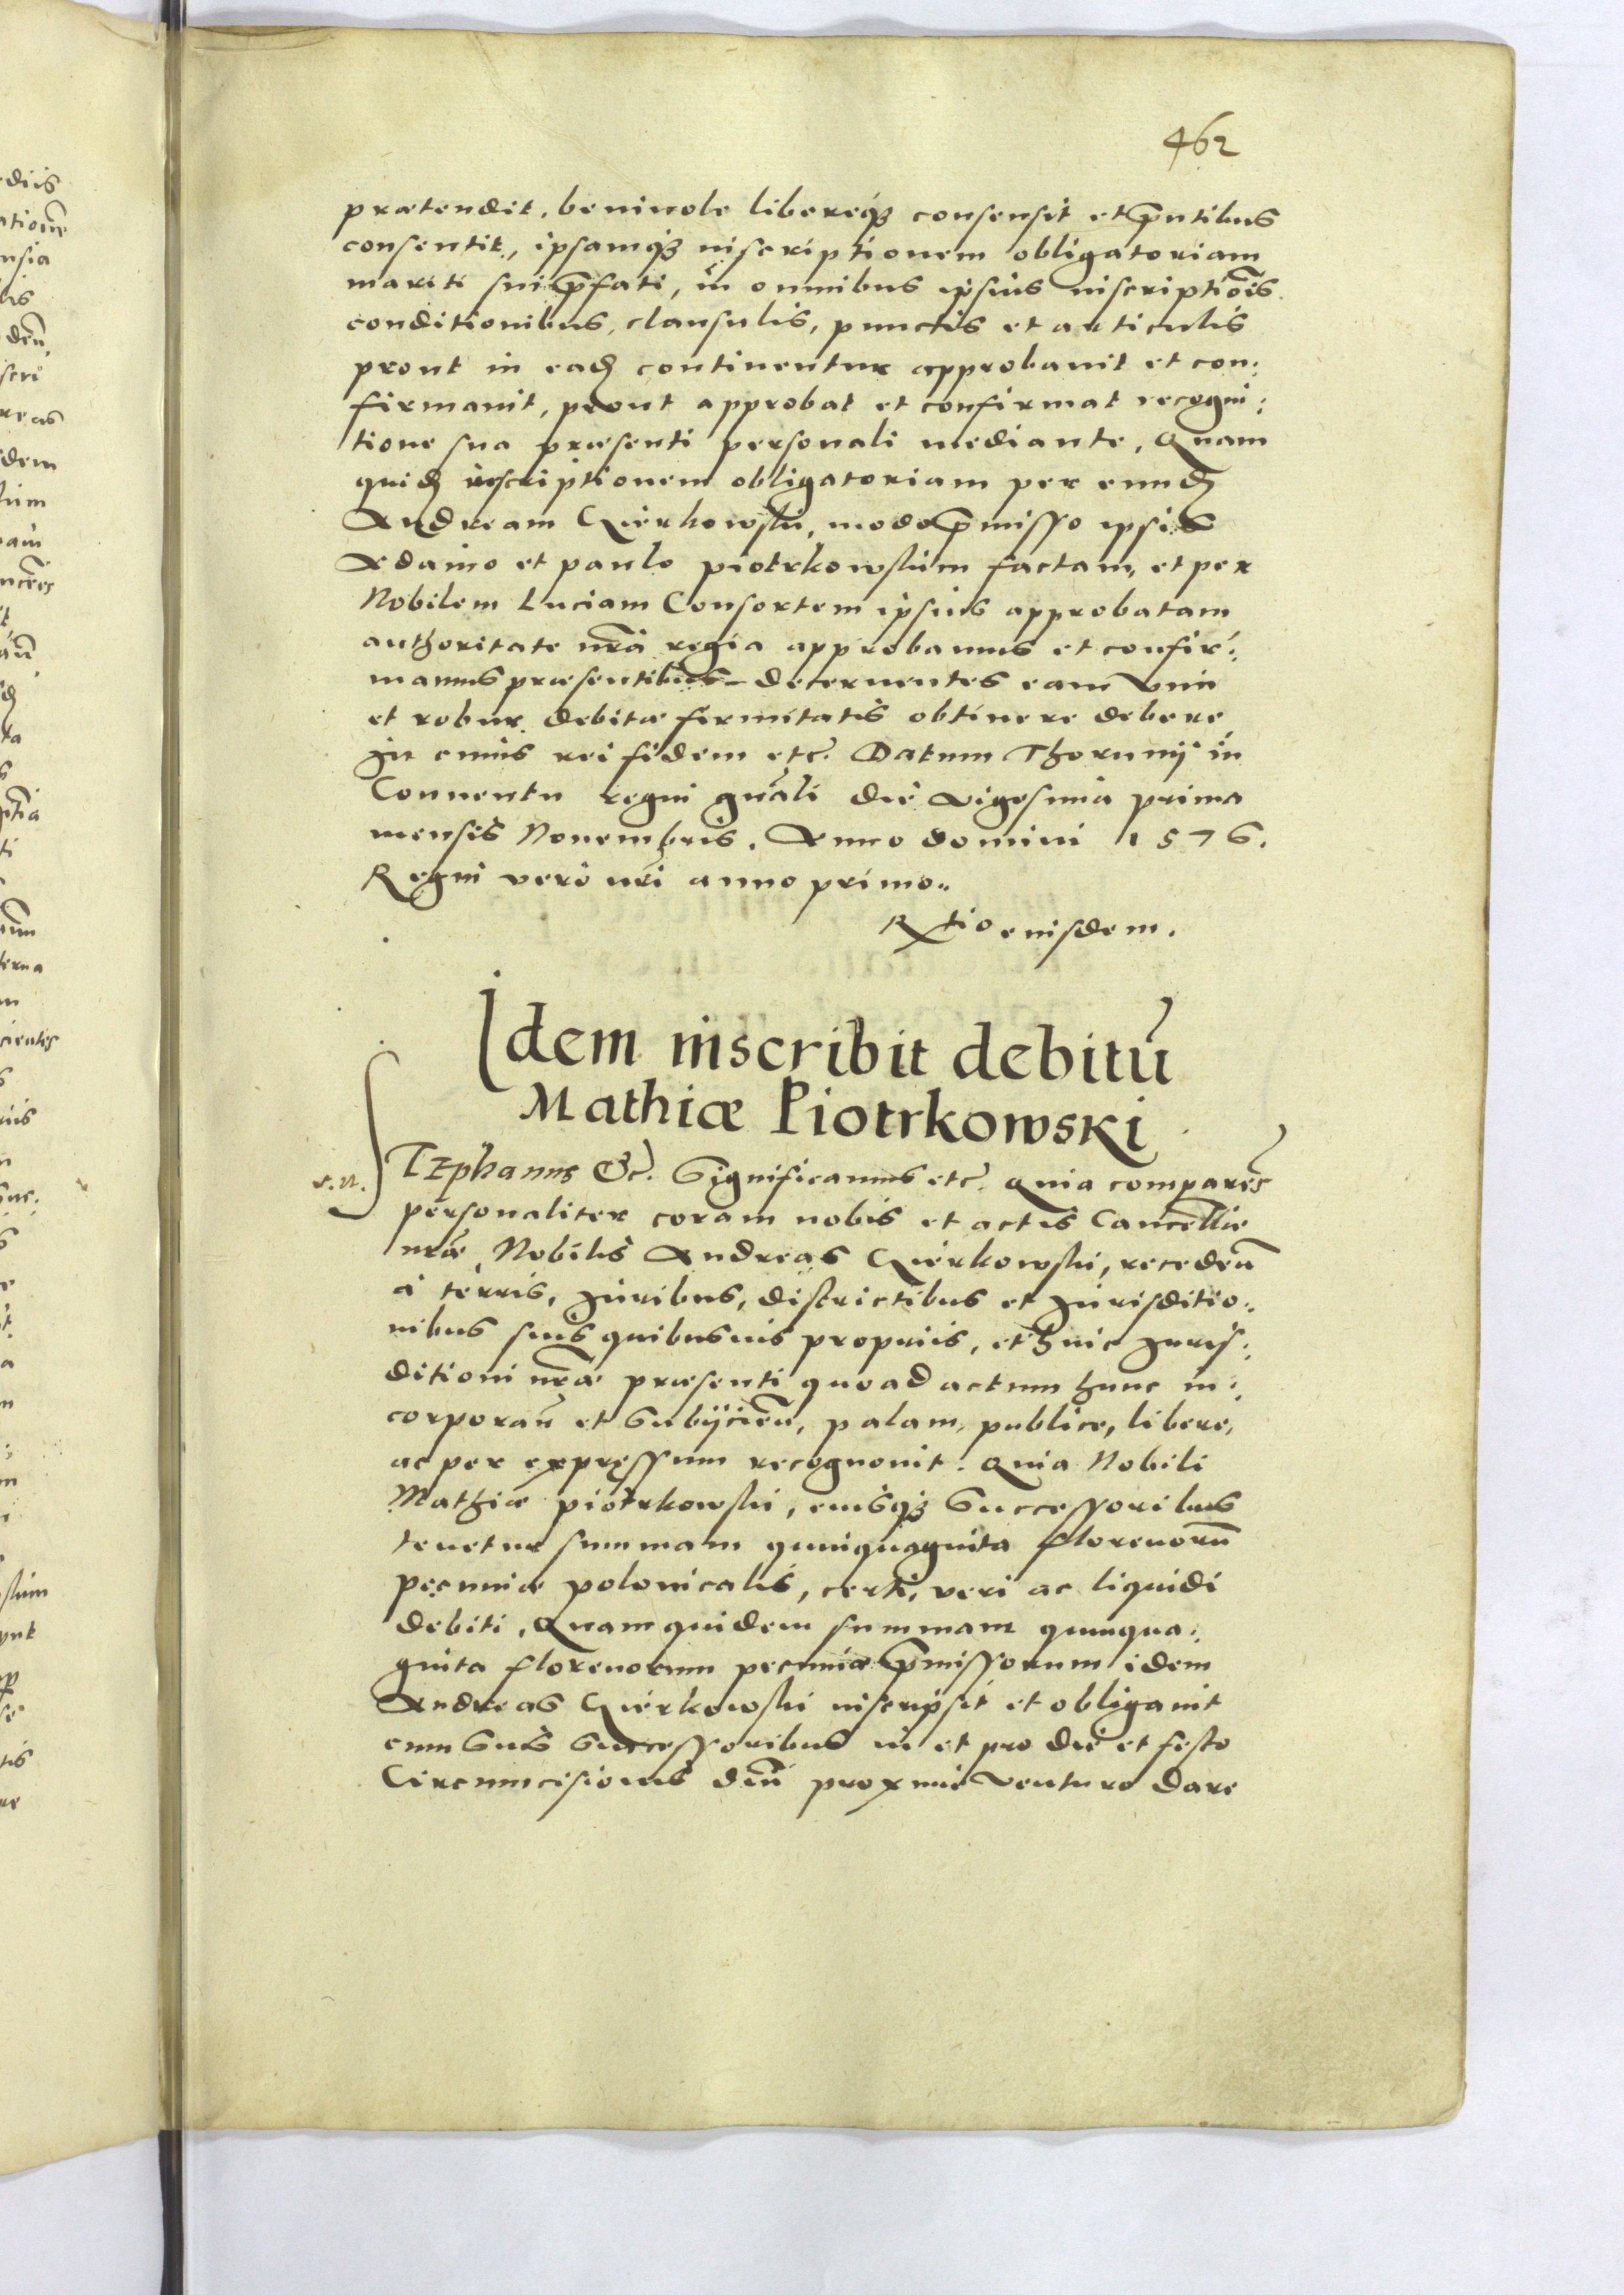 462
prætendit, beniuole libereq3 consensit et p̃ntibus
consentit, ipsamq3 inscriptionem obligatoriam
mariti sui p̃fati, in omnibus ipsius inscriptio͂is
conditionibus, clausulis, punctis et articulis
prout in ead continentur approbauit et con:
firmauit, prout approbat et confirmat recogni:
tione sua præsenti personali mediante, Quam
quid inscriptionem obligatoriam per eund
Andream Qierkowski, modo p̃misso ipsis
Adamo et paulo piotrkowskim factam, et per
Nobilem Luciam Consortem ipsius approbatam
authoritate nr̃a regia approbamus et confir:
mamus præsentibus decernentes eam vim
et robur debitæ firmitatis obtinere debere,
In cuius rei fidem etc. Datum Thorunij in
Conuentu regni gñali die vigesima prima
mensis Nouembris. Anno domini 1576.
Regni vero nr̃i anno primo..
Rtio eiusdem.
Idem inscribit debitũ
Mathiæ Piotrkowski
r. n. STEphanus &c. Significamus etc. Quia comparẽs
personaliter coram nobis et actis Cancelliæ
nr̃æ Nobilis Andreas Qierkowski, recedeñ
à terris, Iuribus, districtibus et Iurisditio:
nibus suis quibusuis propriis, et huic Iuris:
ditioni nr̃æ præsenti quo ad actum hunc in:
corporañ et Subijcieñ, palam, publice, libere,
ac per expressum recognouit. Quia Nobili
Mathiæ piotrkowski, eiusq3 Successoribus
tenetur summam quinquaginta florenorũ
pecuniæ polonicalis, certi, veri ac liquidi
debiti, Quam quidem summam quinqua:
ginta florenorum pecuniæ p̃missorum idem
Andreas Qierkowski inscripsit et obligauit
cum Suis Successoribus in et pro die et festo
Circumcisionis Dñi proxime venturo Dare